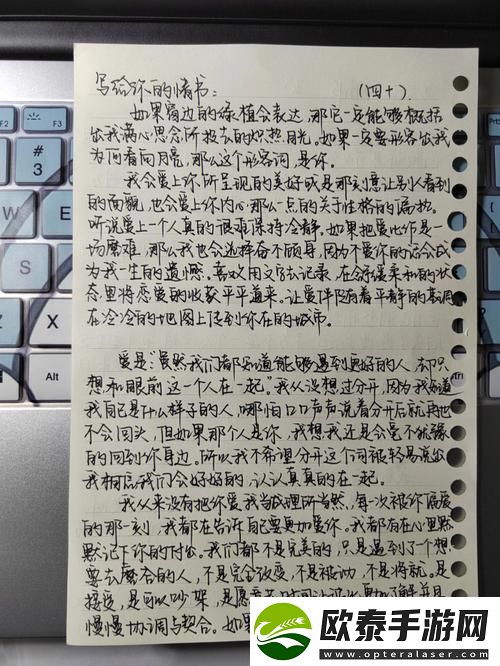 写给你的情书： （四十）
如果窗边的绿植会表达，那它一定能够概括
出我满心思念所投去的炽热目光。如果一定要形容出我
为何看向月亮，那么这个形容词，是你。
我会爱上你所呈现的美好或是那刻意让别人看到
的面貌，也会爱上你内心那么一点的关于性格的偏执。
听说爱上一个人真的很难保持冷静，如果把爱比作是一
场磨难，那么我也会选择奋不顾身，因为不爱你的话会成
为我一生的遗憾。喜欢用文字去记录，在舒缓柔和的状
态里将恋爱的收获平平道来。让爱伴随着平静的基调
在冷冷的地图上传到你在的城市。
爱是"虽然我们都知道能够遇到更好的人，却只
想和眼前这一个人在一起。"我从没想过分开，因为我知道
我自己是什么样子的人，哪怕口口声声说着分开后就再也
不会回头，但如果那个人是你，我想我还是会毫不犹豫
的回到你身边。所以我不希望分开这个词被轻易说出
我相信我们会好好的，认认真真的在一起。
我从来没有把你爱我当成理所当然，每一次被你偏爱
的那一刻，我都在告诉自己要更加爱你。我都有在心里默
默记下你的付出。我们都不是完美的，只是遇到了个想
要去磨合的人，不是完全改变，不是被动，不是将就。是
接受，是可以吵架，是愿意
慢慢协调与契合。如果
欧泰手游网
www.opteralaser.com
F2
F3
#
3